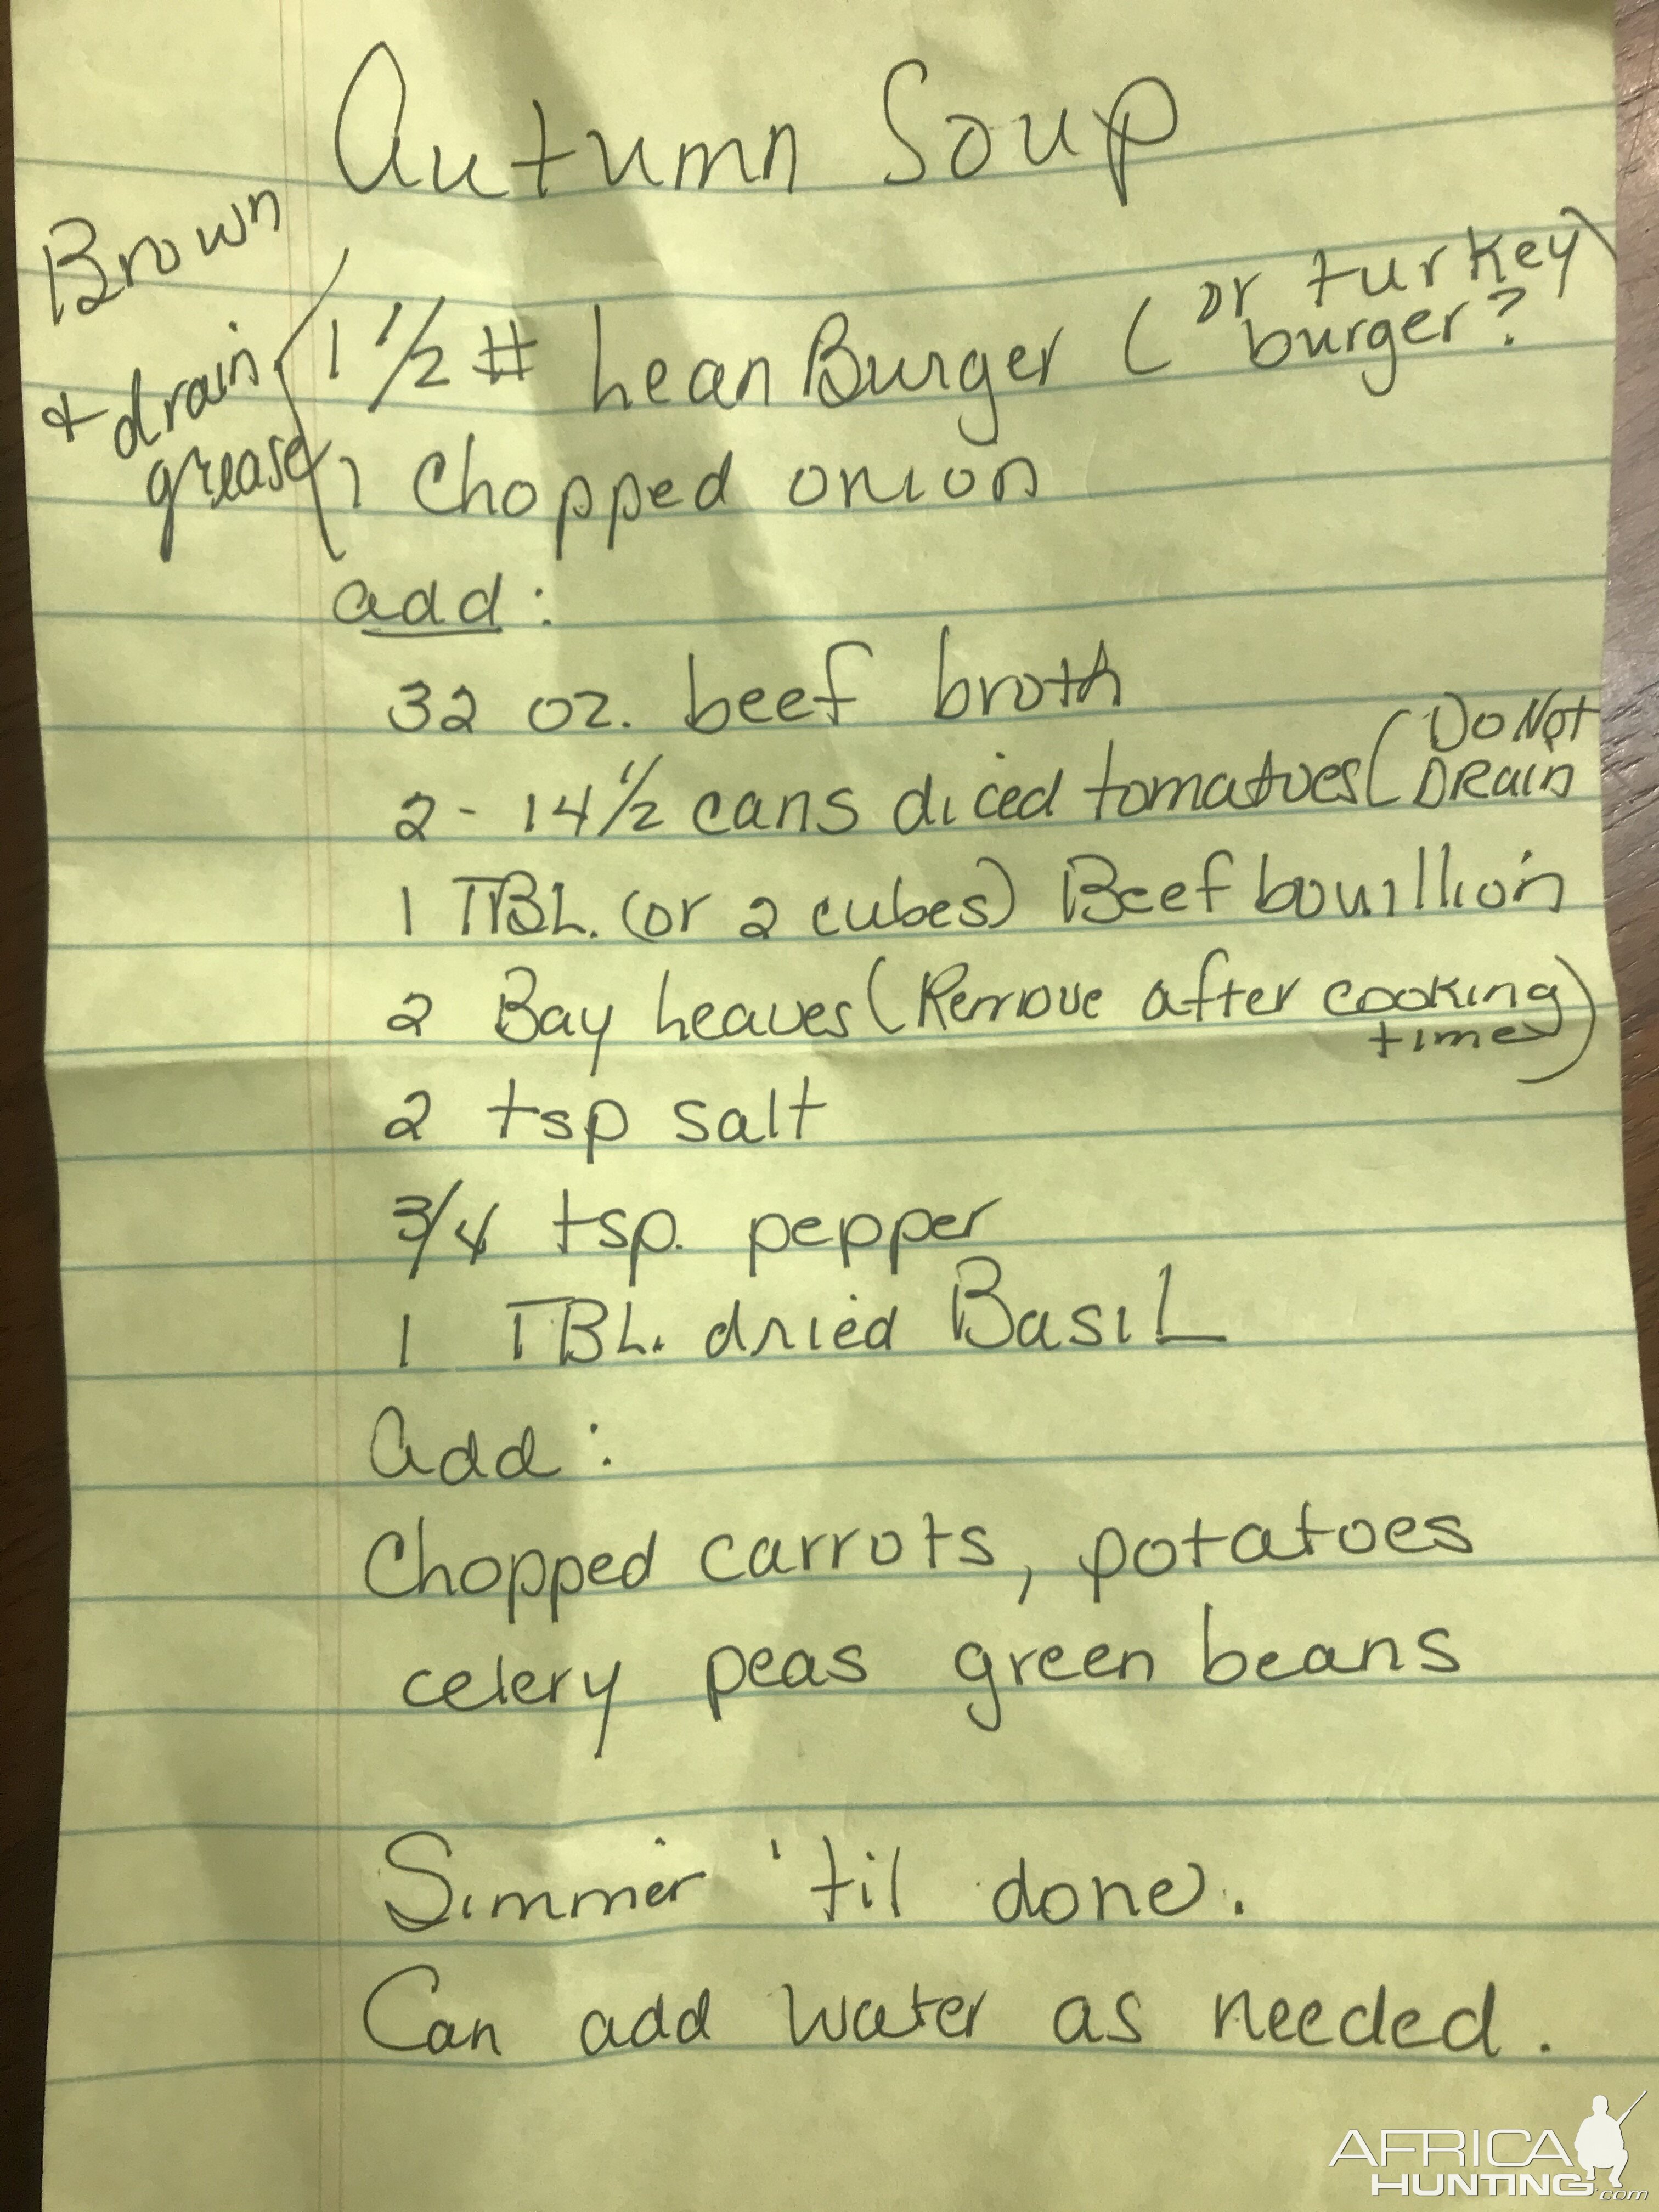 Autumn Soup
Brown
+ drain
grease
1 1/2 # Lean Burger ( or turkey
burger? )
1 Chopped onion
add:
32 oz. beef broth
2 - 14 1/2 cans diced tomatoes ( Do Not
DRain
1 TBL. (or 2 cubes) Beef bouillion
2 Bay Leaves ( Remove after cooking
time )
2 tsp salt
3/4 tsp. pepper
1 TBL. dried BasiL
Add:
Chopped carrots, potatoes
celery peas green beans
Simmer 'til done.
Can add water as needed.
AFRICA
HUNTING.com